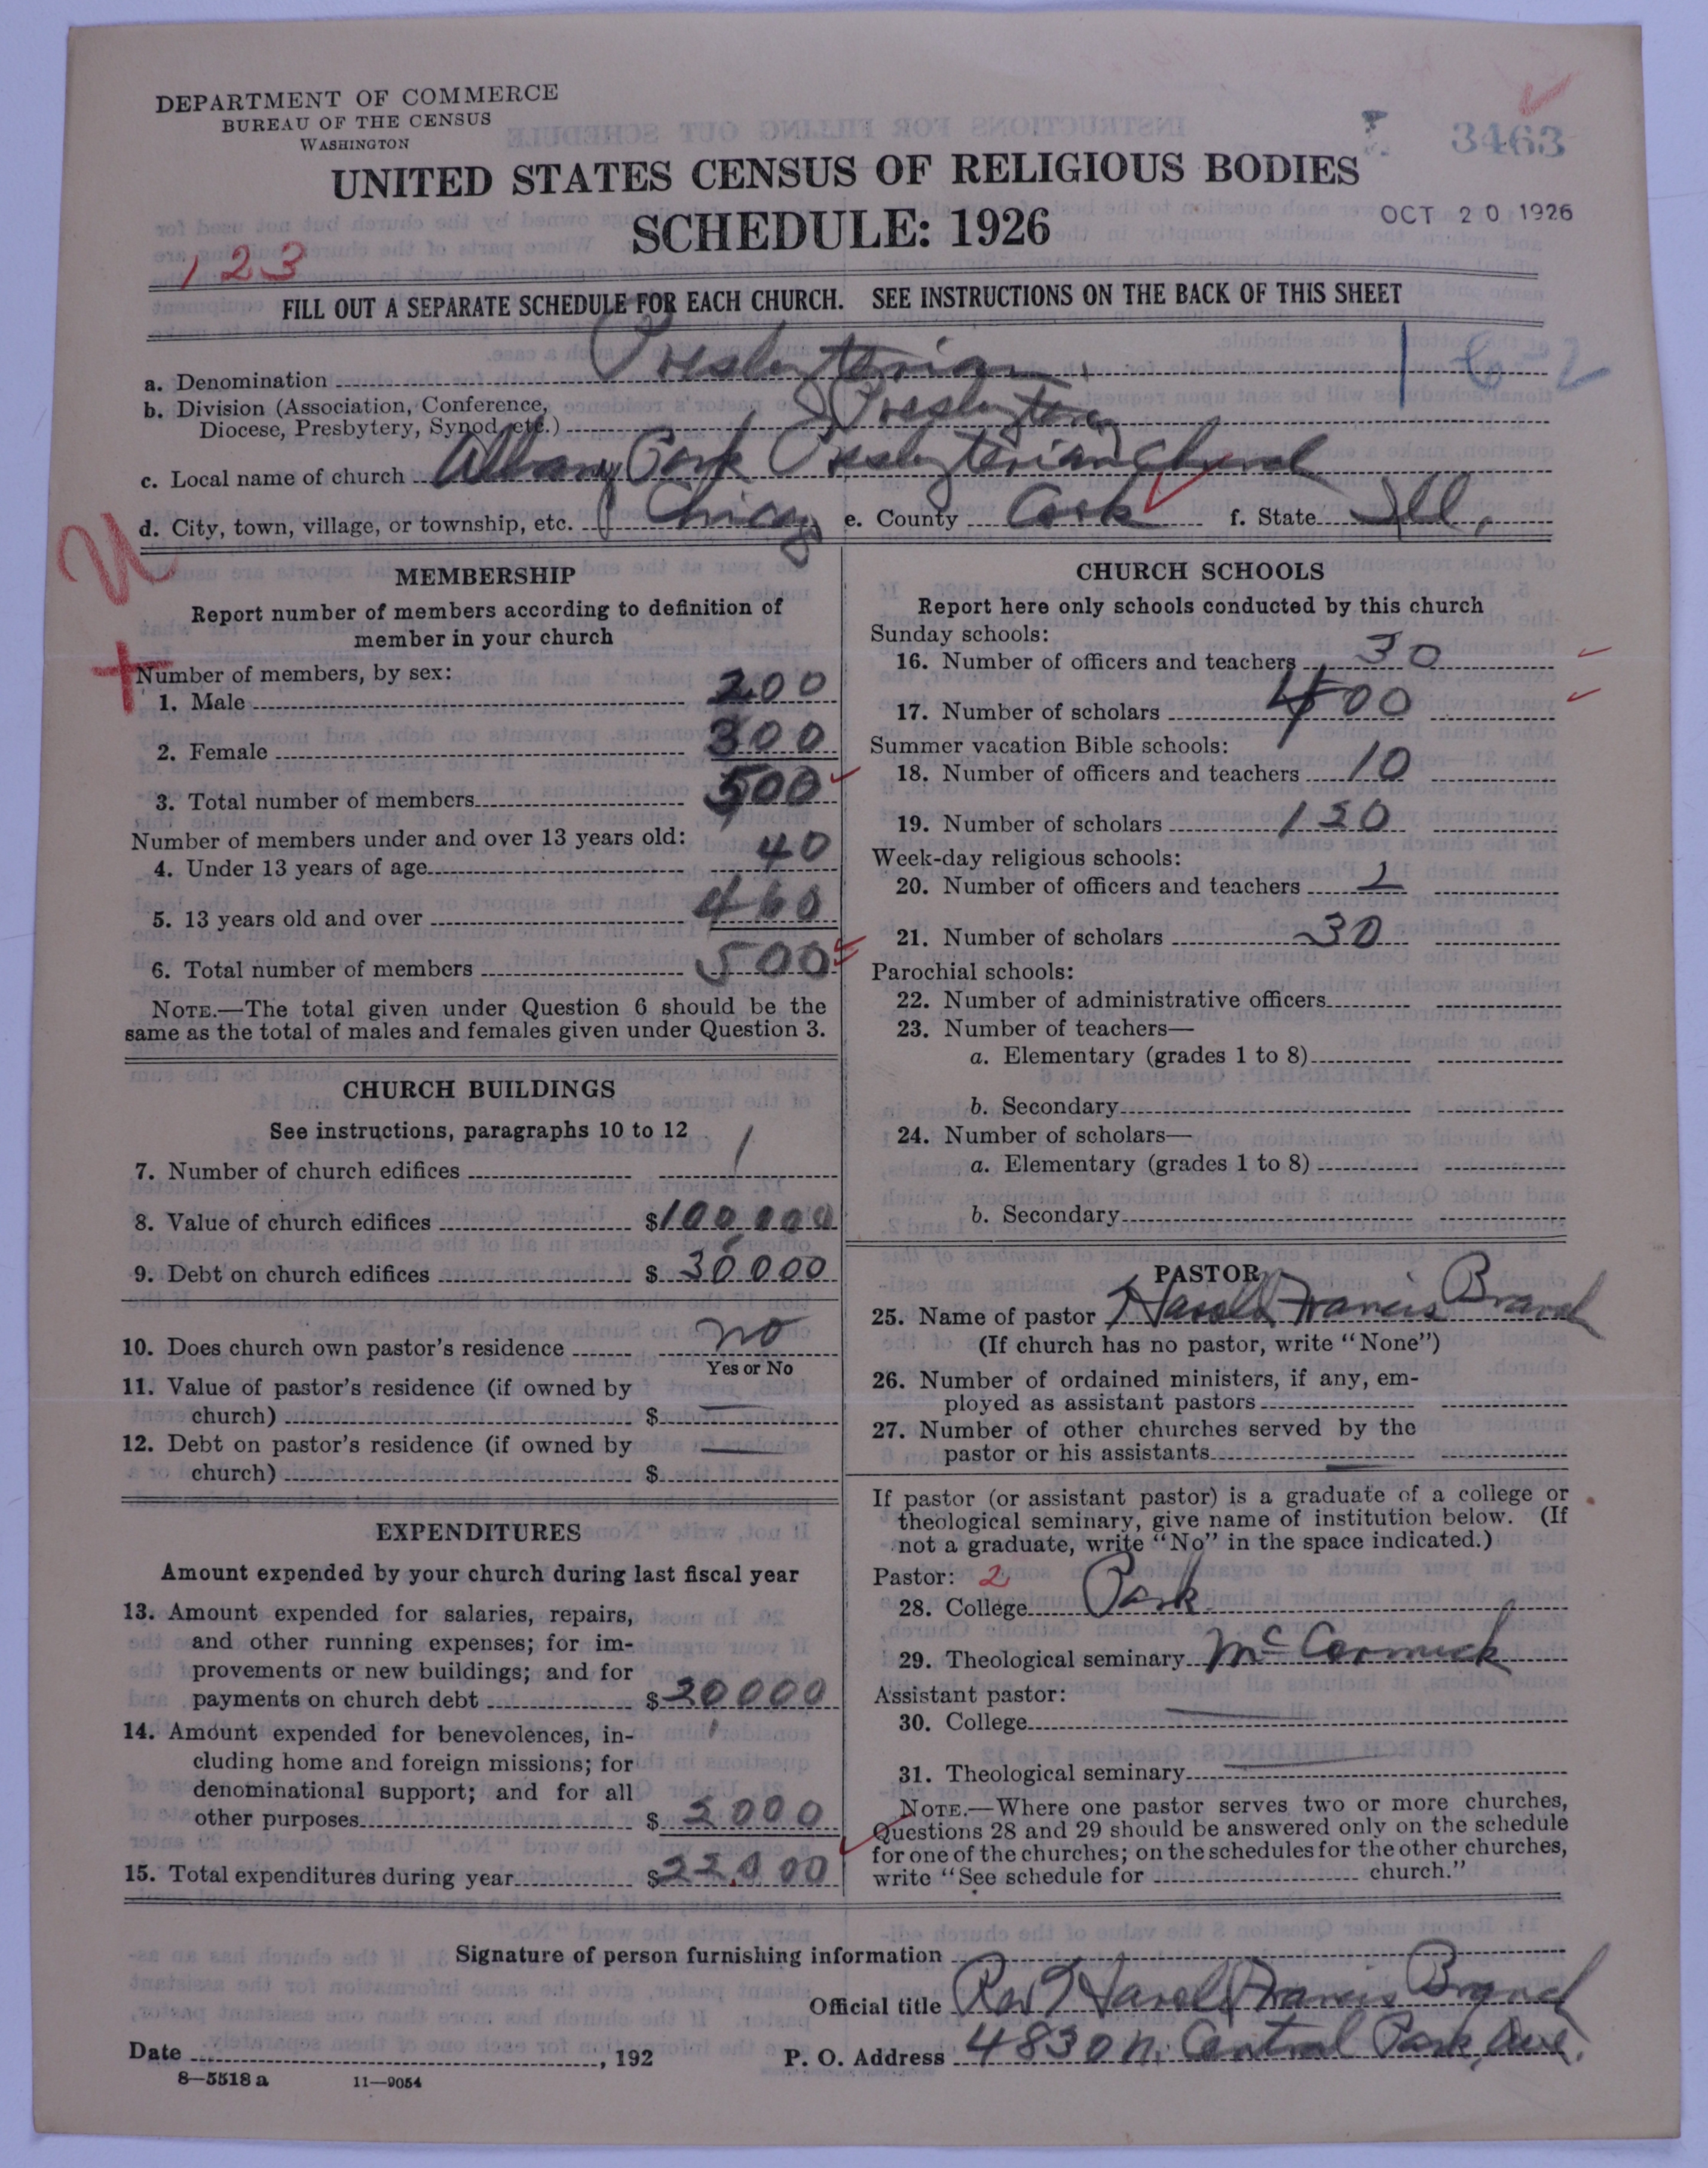 DEPARTMENT OF COMMERCE
BUREAU OF THE CENSUS
WASHINGTON
3463
UNITED STATES CENSUS OF RELIGIOUS BODIES
SCHEDULE: 1926
OCT 20 1926
123
FILL OUT A SEPARATE SCHEDULE FOR EACH CHURCH. SEE INSTRUCTIONS ON THE BACK OF THIS SHEET
a. Denomination Presbyterian
b. Division (Association, Conference, Diocese, Presbytery, Synod, etc.) Presbytery
c. Local name of church Albany Park Presbyterian Church
d. City, town, village, or township, etc. Chicago e. County Cook f. State Ill.
MEMBERSHIP
Report number of members according to definition of
member in your church
Number of members, by sex:
1. Male 200
2. Female 300
3. Total number of members 500
Number of members under and over 13 years old:
4. Under 13 years of age 40
5. 13 years old and over 460
6. Total number of members 500
NOTE.—The total given under Question 6 should be the
same as the total of males and females given under Question 3.
CHURCH BUILDINGS
See instructions, paragraphs 10 to 12
7. Number of church edifices 1
8. Value of church edifices $100,000
9. Debt on church edifices $30000
10. Does church own pastor's residence no
Yes or No
11. Value of pastor's residence (if owned by
church) $ —
12. Debt on pastor's residence (if owned by
church) $ —
EXPENDITURES
Amount expended by your church during last fiscal year
13. Amount expended for salaries, repairs,
and other running expenses; for im-
provements or new buildings; and for
payments on church debt $20000
14. Amount expended for benevolences, in-
cluding home and foreign missions; for
denominational support; and for all
other purposes $2000
15. Total expenditures during year $22,000
CHURCH SCHOOLS
Report here only schools conducted by this church
Sunday schools:
16. Number of officers and teachers 30
17. Number of scholars 400
Summer vacation Bible schools:
18. Number of officers and teachers 10
19. Number of scholars
Week-day religious schools:
20. Number of officers and teachers
21. Number of scholars 30
Parochial schools:
22. Number of administrative officers
23. Number of teachers—
a. Elementary (grades 1 to 8)
b. Secondary
24. Number of scholars—
a. Elementary (grades 1 to 8)
b. Secondary
PASTOR
25. Name of pastor Harold Francis Branch
(If church has no pastor, write "None")
26. Number of ordained ministers, if any, em-
ployed as assistant pastors
27. Number of other churches served by the
pastor or his assistants —
If pastor (or assistant pastor) is a graduate of a college or
theological seminary, give name of institution below. (If
not a graduate, write "No" in the space indicated.)
Pastor: 2
28. College Park
29. Theological seminary McCormick
Assistant pastor:
30. College —
31. Theological seminary —
NOTE.—Where one pastor serves two or more churches,
Questions 28 and 29 should be answered only on the schedule
for one of the churches; on the schedules for the other churches,
write "See schedule for church."
Signature of person furnishing information
Official title Rev Harold Francis Branch
Date , 192 P. O. Address 4830 N. Central Park Ave.
8—5518 a 11—9054